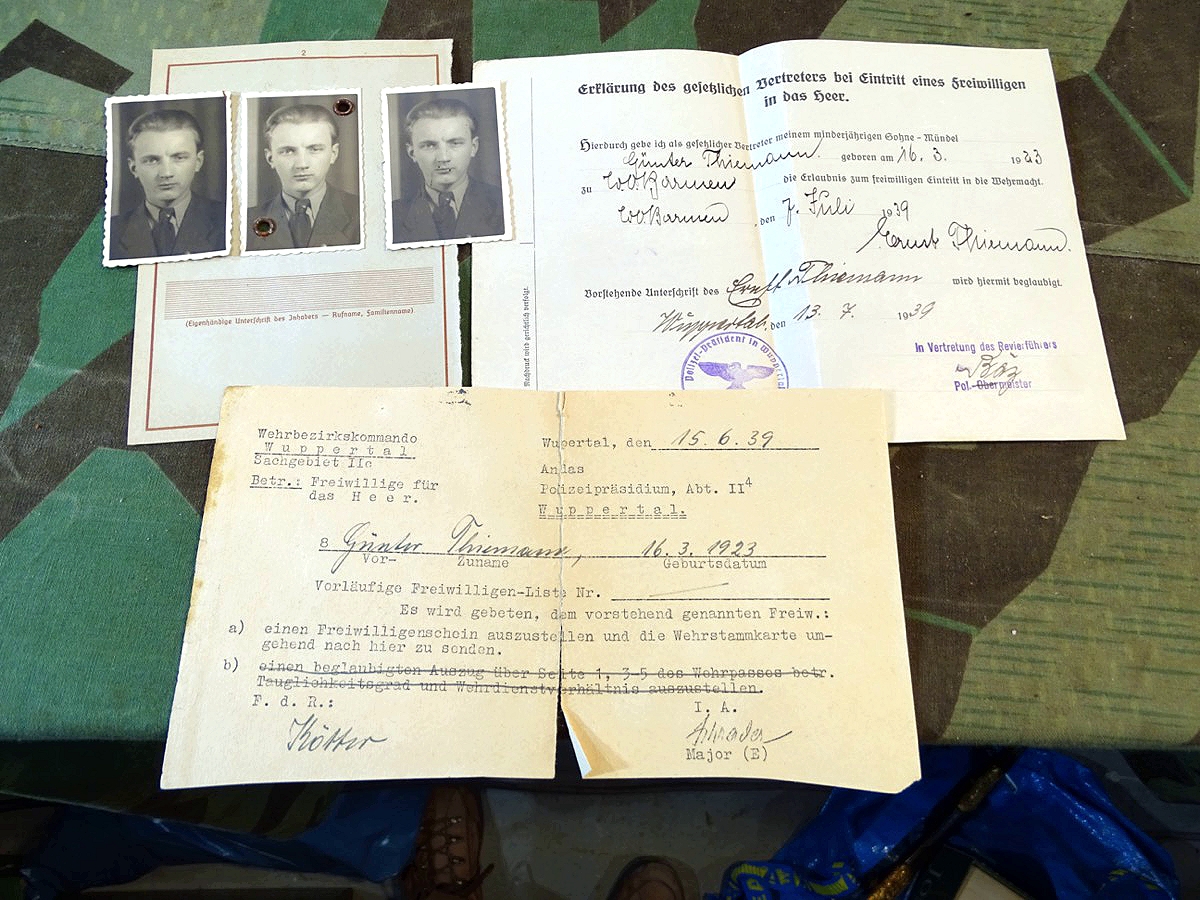 2
(Eigenhändige Unterschrift des Inhabers — Rufname, Familienname)
Erklärung des gesetzlichen Vertreters bei Eintritt eines Freiwilligen
in das Heer.
Hierdurch gebe ich als gesetzlicher Vertreter meinem minderjährigen Sohne - Mündel
Günter Thiemann geboren am 16. 3. 1923
zu W-Barmen die Erlaubnis zum freiwilligen Eintritt in die Wehrmacht.
W-Barmen, den 7. Juli 1939
Ernst Thiemann.
Vorstehende Unterschrift des Ernst Thiemann wird hiermit beglaubigt.
Wuppertal, den 13. 7. 1939
Nachdruck wird gerichtlich verfolgt.
Polizei-Präsident in Wuppertal
In Vertretung des Revierführers
Pol.-Obermeister
Wehrbezirkskommando
Wuppertal
Sachgebiet IIc
Betr.: Freiwillige für
das Heer.
Wupertal, den 15. 6. 39
Andas
Polizeipräsidium, Abt. II4
Wuppertal.
8 Günter Thiemann, 16. 3. 1923
Vor- Zuname Geburtsdatum
Vorläufige Freiwilligen-Liste Nr.
Es wird gebeten, dem vorstehend genannten Freiw.:
a) einen Freiwilligenschein auszustellen und die Wehrstammkarte um-
gehend nach hier zu senden.
b) einen beglaubigten Auszug über Seite 1, 3-5 des Wehrpasses betr.
Tauglichkeitsgrad und Wehrdienstverhältnis auszustellen.
F. d. R.:
Kötter
I. A.
Schrader
Major (E)